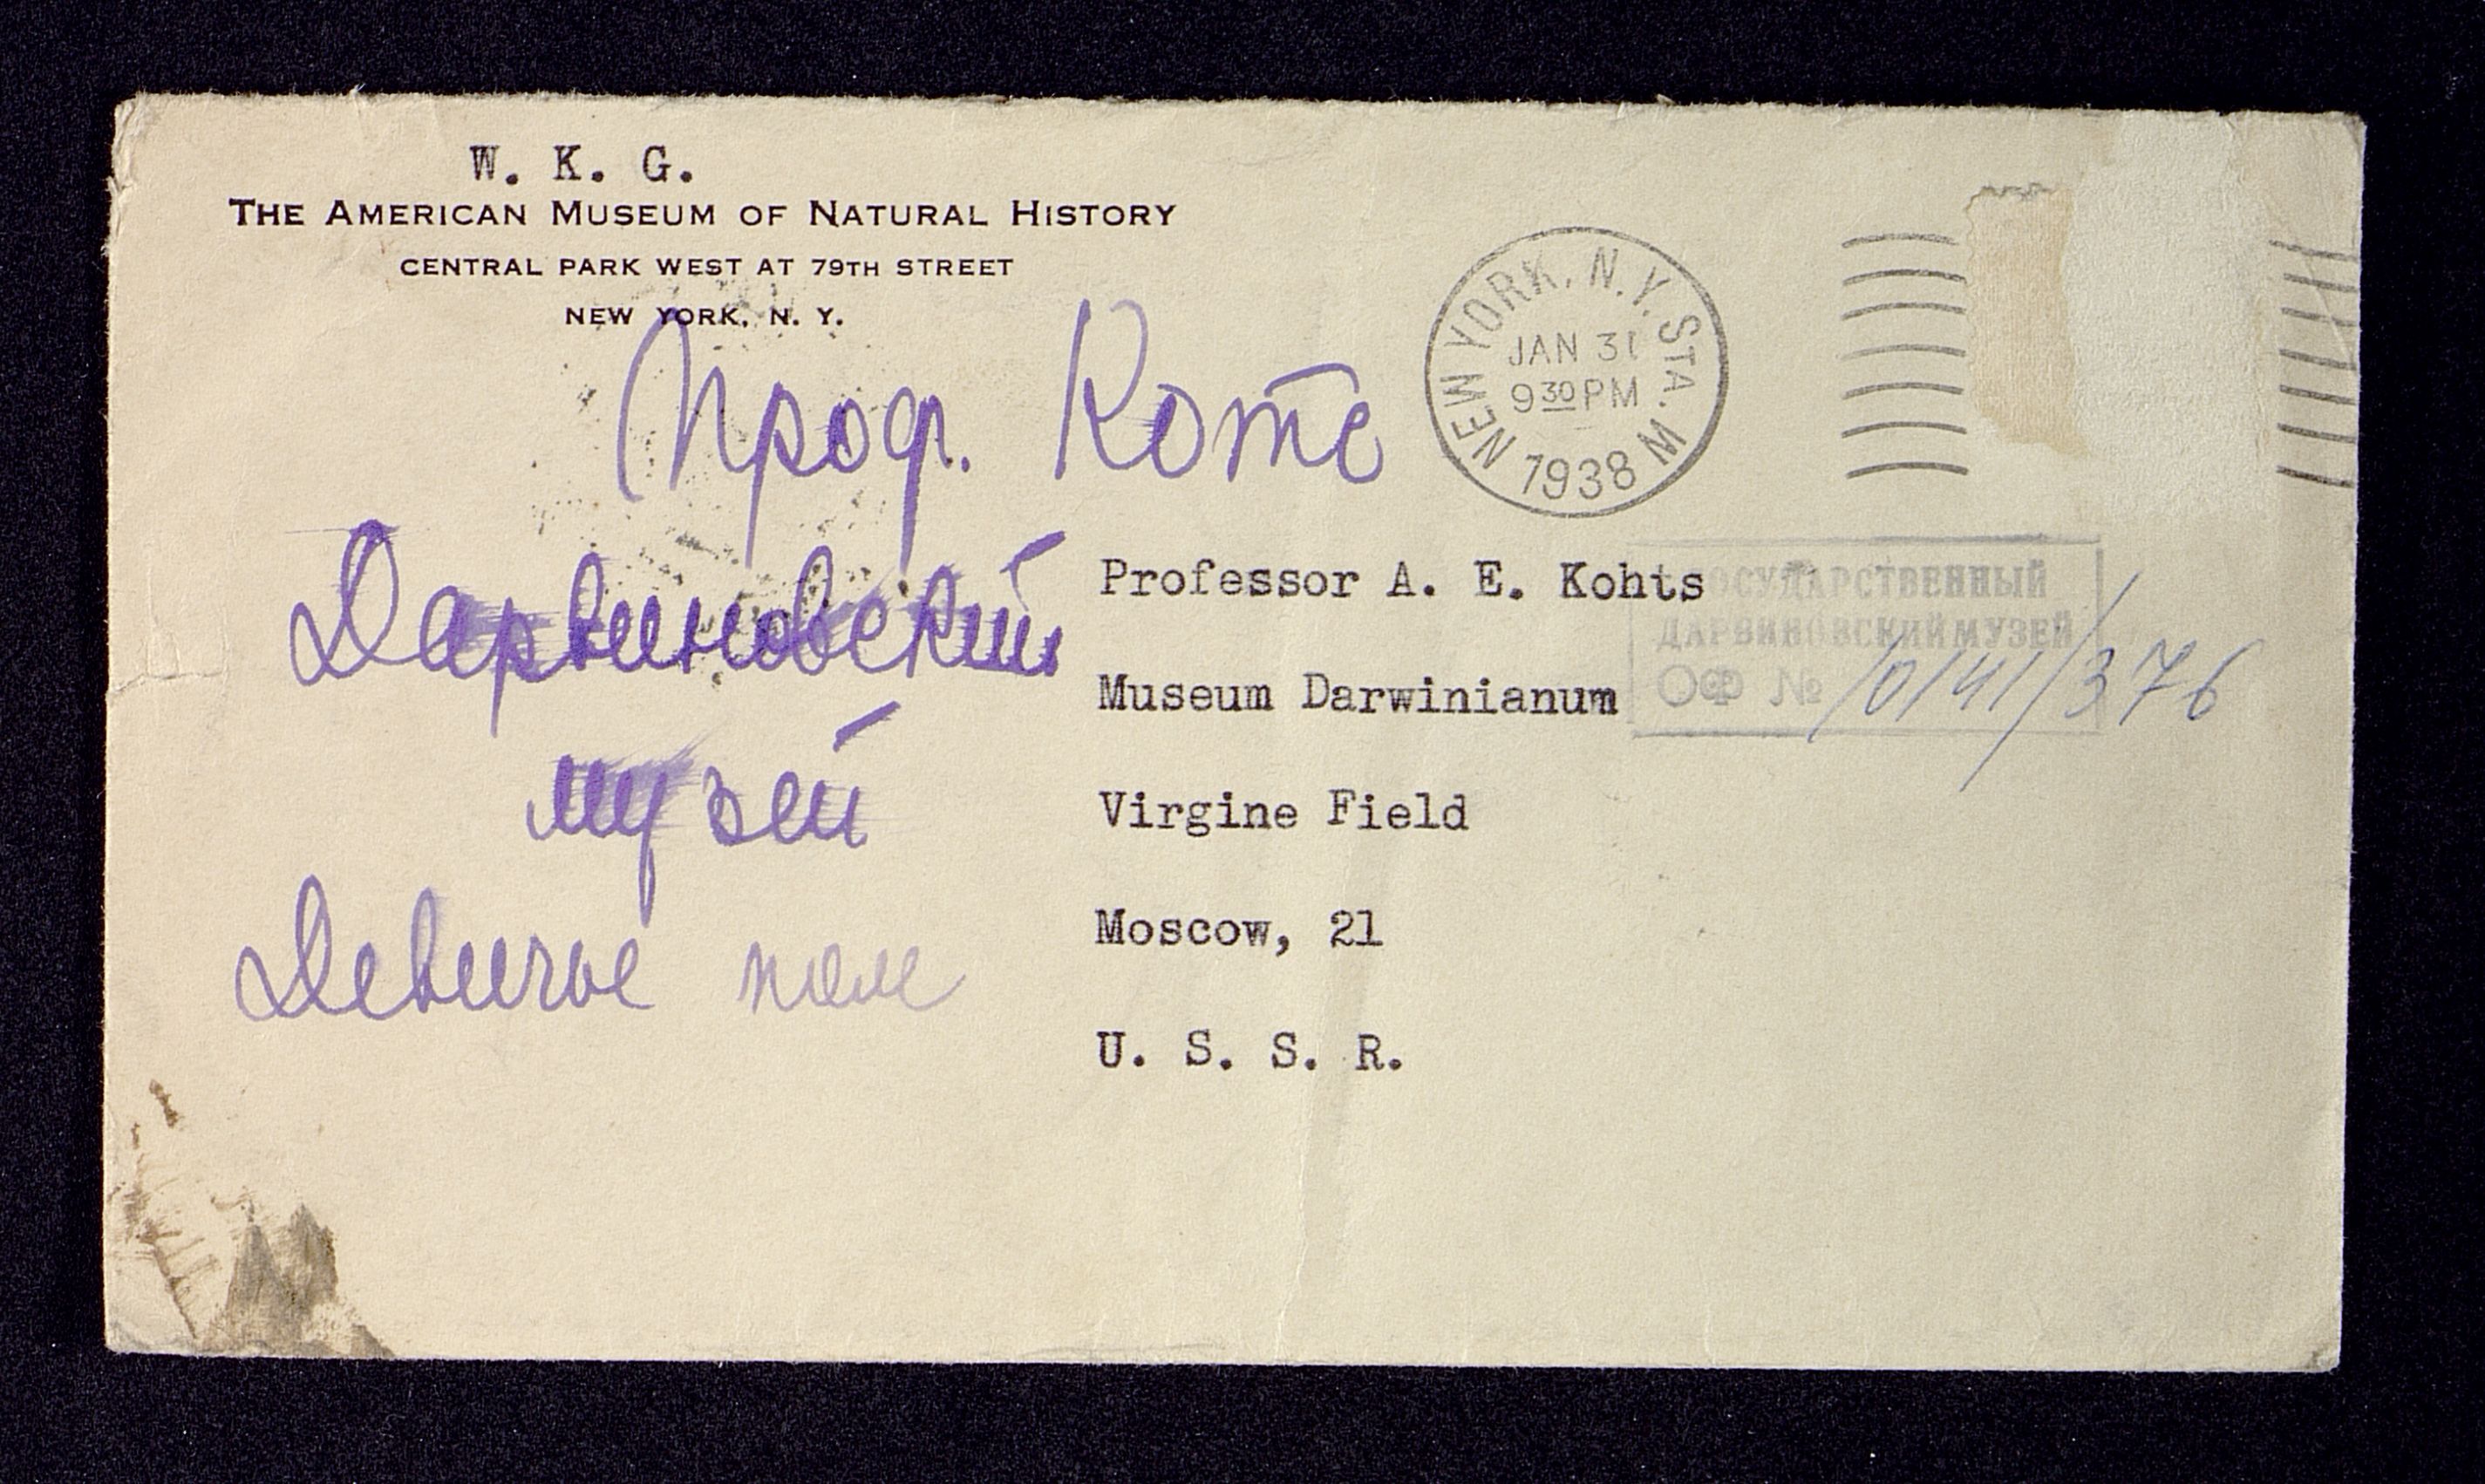 W. K. G.
THE AMERICAN MUSEUM OF NATURAL HISTORY
CENTRAL PARK WEST AT 79TH STREET
NEW YORK, N. Y.
NEW YORK, N.Y. STA. W
JAN 31
9 30 PM
1938
Проф. Котс
Дарвиновский
музей
Девичье поле
Professor A. E. Kohts
Museum Darwinianum
Virgine Field
Moscow, 21
U. S. S. R.
ГОСУДАРСТВЕННЫЙ
ДАРВИНОВСКИЙ МУЗЕЙ
ОФ № 10141/376